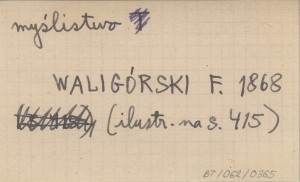 myślistwo
WALIGÓRSKI F. 1868
(ilustr. na s. 415)
B7/062/0365